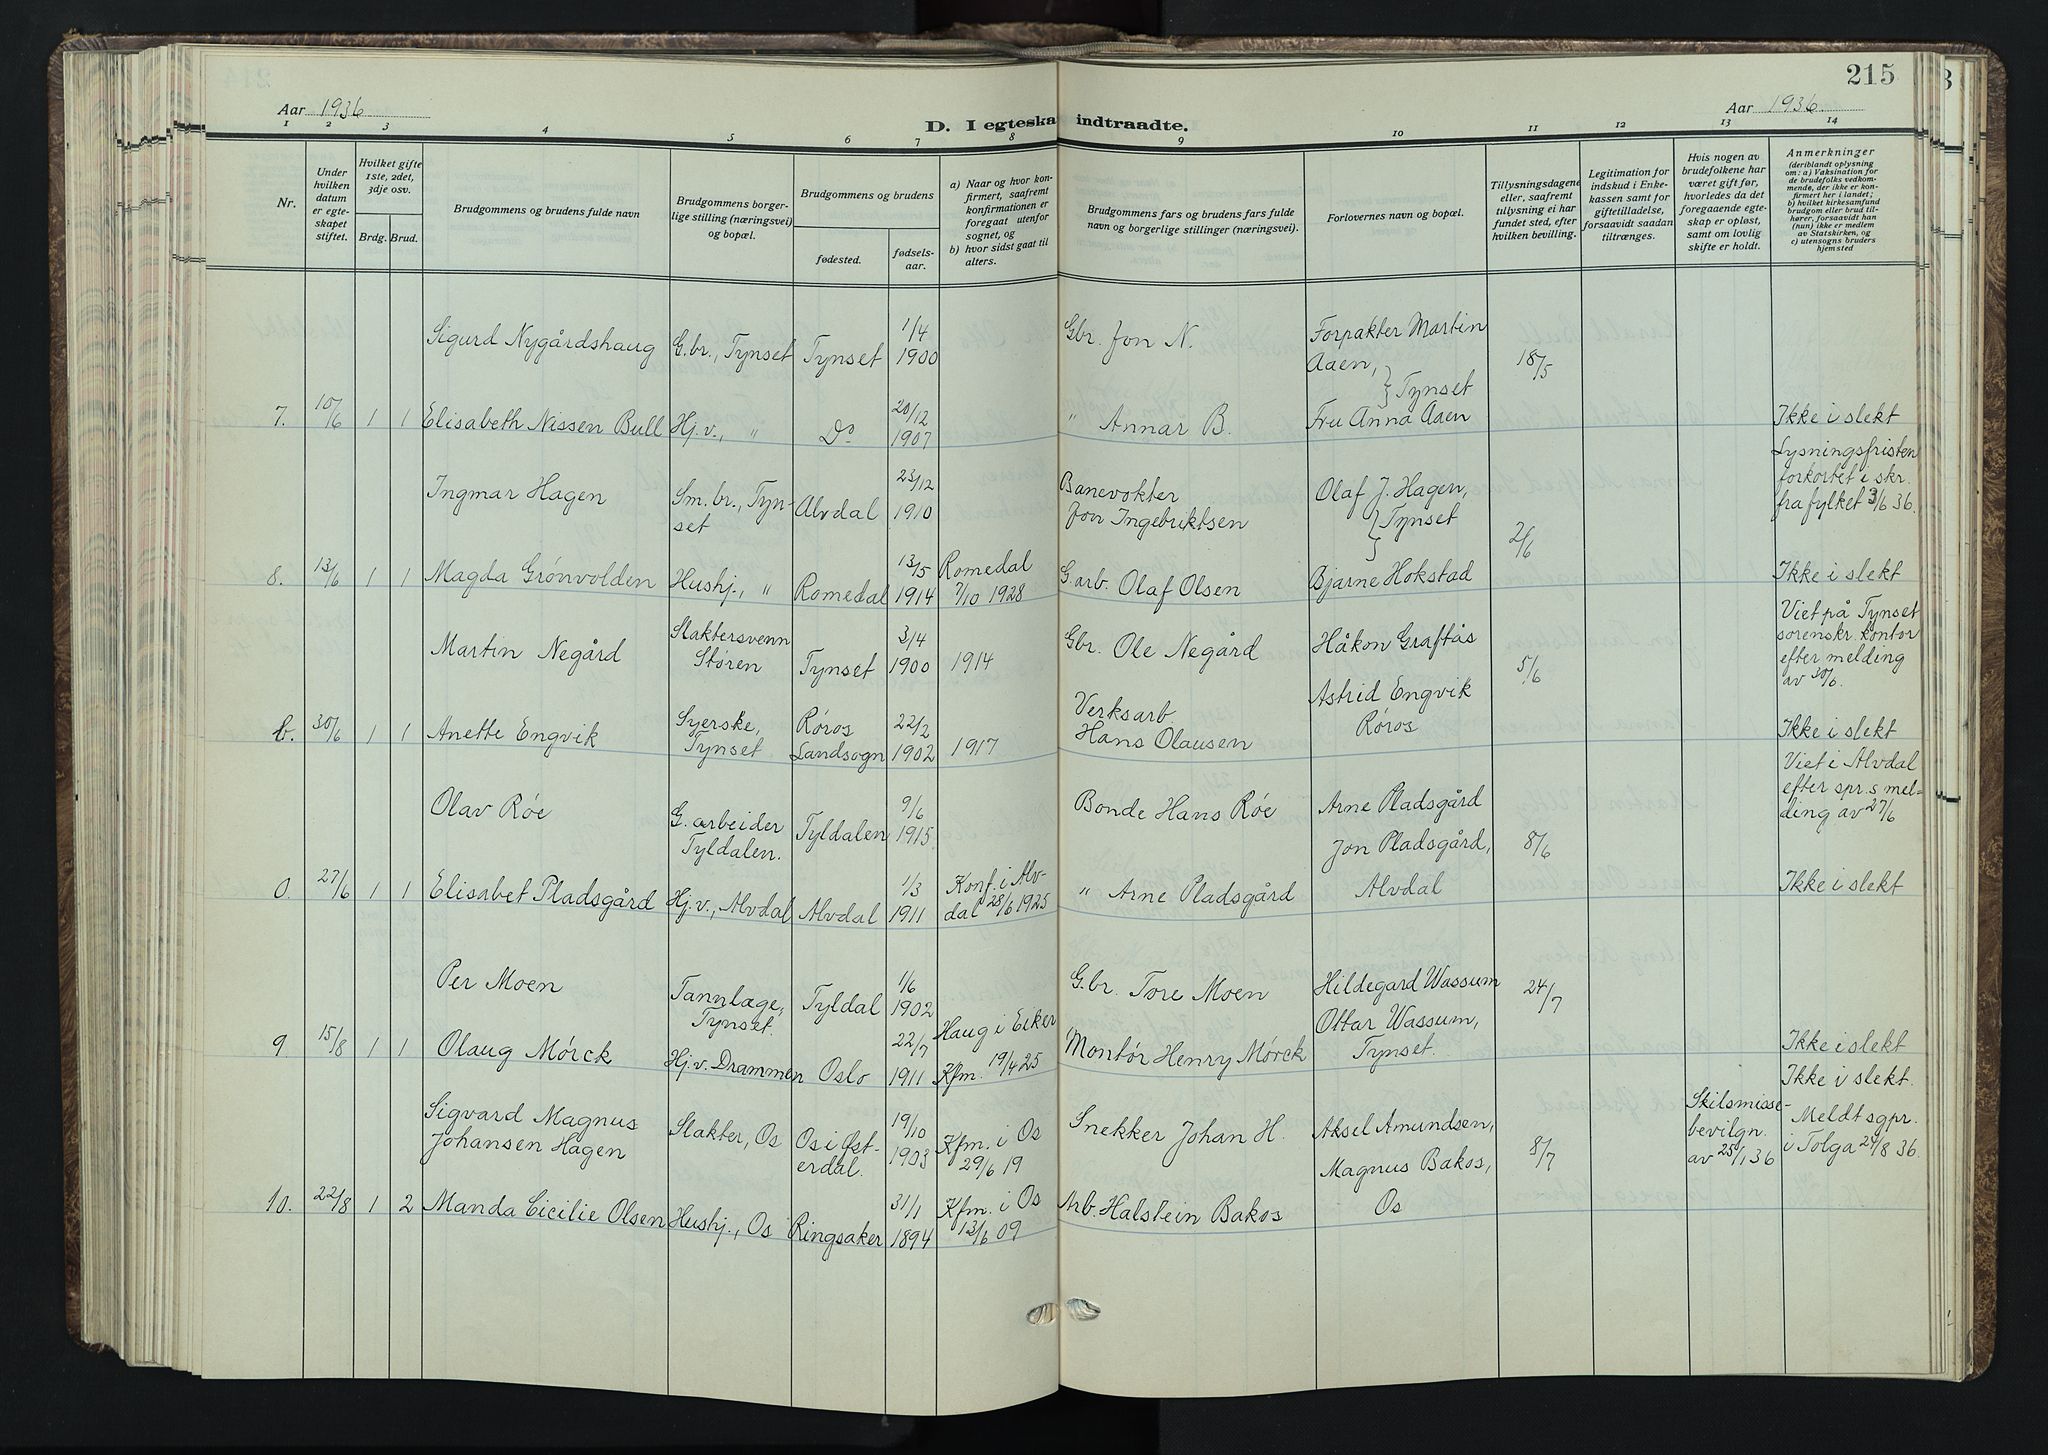 215
Aar 1936
D. I egteska indtraadte.
Aar 1936.
1 2 3 4 5 6 7 8 9 10 11 12 13 14
Nr.
Under hvilken datum er egteskapet stiftet.
Hvilket gifte 1ste, 2det, 3dje osv.
Brdg. Brud.
Brudgommens og brudens fulde navn
Brudgommens borgerlige stilling (næringsvei) og bopæl.
Brudgommens og brudens
fødested.
fødselsaar.
a) Naar og hvor konfirmert, saafremt konfirmationen er foregaat utenfor sognet, og
b) hvor sidst gaat til alters.
Brudgommens fars og brudens fars fulde navn og borgerlige stillinger (næringsvei).
Forlovernes navn og bopæl.
Tillysningsdagene eller, saafremt tillysning ei har fundet sted, efter hvilken bevilling.
Legitimation for indskud i Enkekassen samt for giftetilladelse, forsaavidt saadan tiltrænges.
Hvis nogen av brudefolkene har været gift før, hvorledes da det foregaaende egteskap er opløst, samt om lovlig skifte er holdt.
Anmerkninger
(deriblandt oplysning om: a) Vaksination for de brudefolks vedkommende, der ikke er konfirmert her i landet;
b) hvilket kirkesamfund brudgom eller brud tilhører, forsaavidt han (hun) ikke er medlem av Statskirken, og
c) utensogns bruders hjemsted
Sigurd Nygårdshaug G.br., Tynset Tynset 1/4 1900 Gbr. Jon N. Forpakter Martin Aaen, } Tynset 18/5
7. 10/6 1 1 Elisabeth Nissen Bull Hj.v., " Do 20/12 1907 " Annar B. Fru Anna Aaen Ikke i slekt
Ingmar Hagen Sm.br., Tynset Alvdal 23/12 1910 Banevokter Jon Ingebriktsen Olaf J. Hagen, } Tynset 2/6 Lysningsfristen forkortet i skr. fra fylket 3/6 36.
8. 13/6 1 1 Magda Grønvolden Hushj., " Romedal 13/5 1914 Romedal 7/10 1928 G.arb. Olaf Olsen Bjarne Hokstad Ikke i slekt
Martin Negård Slaktersvenn Støren Tynset 3/4 1900 1914 Gbr. Ole Negård Håkon Graftås 5/6 Viet på Tynset sorenskr. kontor efter melding av 30/6.
b. 30/6 1 1 Anette Engvik Syerske, Tynset Røros Landsogn 22/2 1902 1917 Verksarb. Hans Olausen Astrid Engvik Røros Ikke i slekt
Olav Røe G. arbeider Tyldalen. Tyldalen 9/6 1915 Bonde Hans Røe Arne Pladsgård 8/6 Viet i Alvdal efter spr.s melding av 27/6
0. 27/6 1 1 Elisabet Pladsgård Hj.v., Alvdal Alvdal 1/3 1911 Konf. i Alvdal 28/6 1925 " Arne Pladsgård Jon Pladsgård, Alvdal Ikke i slekt
Per Moen Tannlæge, Tynset. Tyldal 1/6 1902 G.br. Tore Moen Hildegard Wassum 24/7
9 15/8 1 1 Olaug Mørck Hj.v. Drammen Oslo 22/7 1911 Haug i Eiker Kfm. 19/4 25 Montør Henry Mørck Ottar Wassum, Tynset. Ikke i slekt
Sigvard Magnus Johansen Hagen Slakter, Os Os i Østerdal. 19/10 1903 Kfm. i Os 29/6 19 Snekker Johan H. Aksel Amundsen, 8/7 Skilsmissebevilgn. av 25/1 36 Ikke i slekt. Meldt sgpr. i Tolga 24/8 36.
10. 22/8 1 2 Manda Cicilie Olsen Hushj., Os Ringsaker 31/1 1894 Kfm. i Os 13/6 09 Arb. Halstein Bakos Magnus Bakos, Os